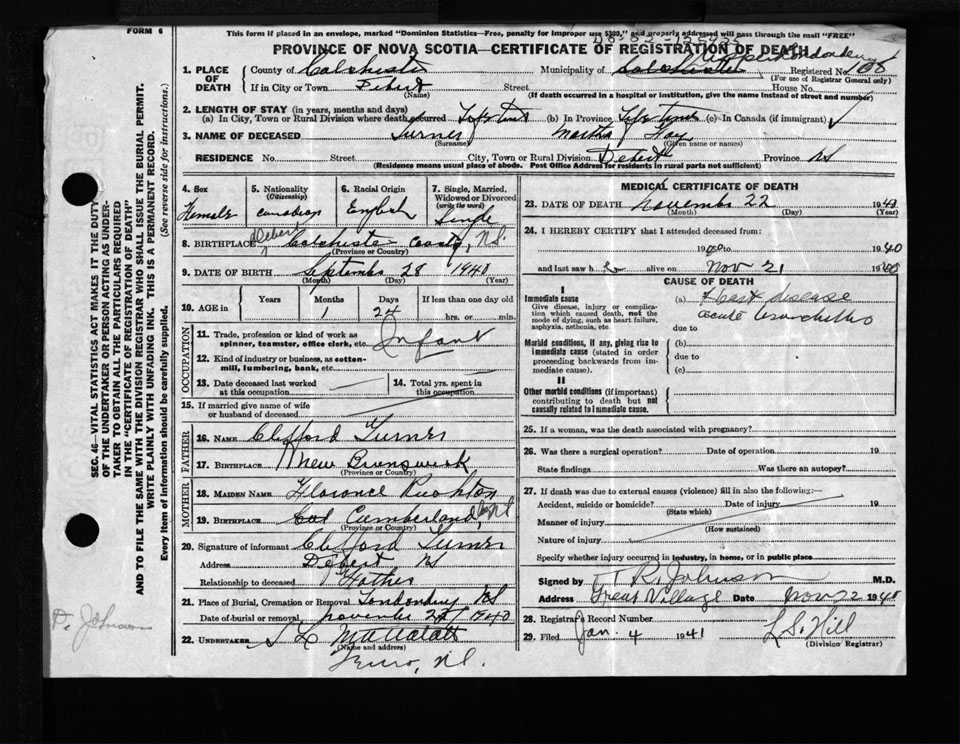 FORM 6
This form if placed in an envelope, marked "Dominion Statistics—Free, penalty for improper use $300," and properly addressed will pass through the mail "FREE"
PROVINCE OF NOVA SCOTIA—CERTIFICATE OF REGISTRATION OF DEATH
1. PLACE OF DEATH County of Colchester Municipality of Colchester Registered No. 108
(For use of Registrar General only)
If in City or Town Debert Street House No.
(Name) (If death occurred in a hospital or institution, give the name instead of street and number)
2. LENGTH OF STAY (in years, months and days)
(a) In City, Town or Rural Division where death occurred Life time (b) In Province Life time (c) In Canada (if immigrant)
3. NAME OF DECEASED Turner Martha Fay
(Surname) (Given name or names)
RESIDENCE No. Street City, Town or Rural Division Debert Province NS
(Residence means usual place of abode. Post Office Address for residents in rural parts not sufficient)
4. Sex Female
5. Nationality (Citizenship) Canadian
6. Racial Origin English
7. Single, Married, Widowed or Divorced (write the word) Single
8. BIRTHPLACE Debert Colchester County, NS.
(Province or Country)
9. DATE OF BIRTH September 28 1940
(Month) (Day) (Year)
10. AGE in Years Months 1 Days 24 If less than one day old hrs. or min.
OCCUPATION
11. Trade, profession or kind of work as spinner, teamster, office clerk, etc. Infant
12. Kind of industry or business, as cotton-mill, lumbering, bank, etc.
13. Date deceased last worked at this occupation
14. Total yrs. spent in this occupation
15. If married give name of wife or husband of deceased
FATHER
16. NAME Clifford Turner
17. BIRTHPLACE New Brunswick
(Province or Country)
MOTHER
18. MAIDEN NAME Florence Rushton
19. BIRTHPLACE Col Cumberland,
(Province or Country)
20. Signature of informant Clifford Turner
Address Debert NS
Relationship to deceased Father
21. Place of Burial, Cremation or Removal Londonderry NS
Date of burial or removal November 1940
22. UNDERTAKER
(Name and address)
Truro, N.S.
MEDICAL CERTIFICATE OF DEATH
23. DATE OF DEATH November 22 1940
(Month) (Day) (Year)
24. I HEREBY CERTIFY that I attended deceased from:
19 to 1940
and last saw h alive on Nov 21 1940
CAUSE OF DEATH
I
Immediate cause (a) Heart disease
Give disease, injury or complication which caused death, not the mode of dying, such as heart failure, asphyxia, asthenia, etc.
acute bronchitis
due to
Morbid conditions, if any, giving rise to immediate cause (stated in order proceeding backwards from immediate cause).
(b)
due to
(c)
II
Other morbid conditions (if important) contributing to death but not causally related to immediate cause.
25. If a woman, was the death associated with pregnancy?
26. Was there a surgical operation? Date of operation 19
State findings Was there an autopsy?
27. If death was due to external causes (violence) fill in also the following:—
Accident, suicide or homicide? Date of injury 19
(State which)
Manner of injury
(How sustained)
Nature of injury
Specify whether injury occurred in industry, in home, or in public place
Signed by T R Johnson M.D.
Address Great Village Date Nov 22 1940
28. Registrar's Record Number
29. Filed Jan. 4 1941 L S. Hill
(Division Registrar)
SEC. 46—VITAL STATISTICS ACT MAKES IT THE DUTY
OF THE UNDERTAKER OR PERSON ACTING AS UNDER-
TAKER TO OBTAIN ALL THE PARTICULARS REQUIRED
IN THE "CERTIFICATE OF REGISTRATION OF DEATH"
AND TO FILE THE SAME WITH THE DIVISION REGISTRAR WHO SHALL ISSUE THE BURIAL PERMIT.
WRITE PLAINLY WITH UNFADING INK. THIS IS A PERMANENT RECORD.
Every item of information should be carefully supplied. (See reverse side for instructions).
Johnson